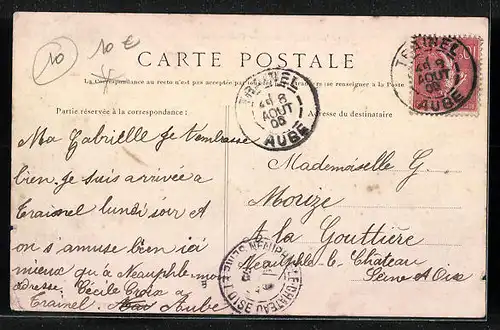 10
10 €
CARTE POSTALE
La Correspondance au recto n'est pas acceptée par
se renseigner à la Poste
Partie réservée à la correspondance :
Adresse du destinataire
TRAINEL
AOUT
AUBE
TRAINEL
AOUT
AUBE
Ma Gabrielle Je t'embrasse
bien. Je suis arrivée a
Trainel lundi soir
on s'amuse bien ici
mieux qu'a Neauphle. mon
adresse : Cécile Croix a
Trainel Aube
Mademoiselle G.
Morize
A la Gouttière
Neauphle le Château
Seine et Oise
NEAUPHLE-LE-CHATEAU SEINE ET OISE